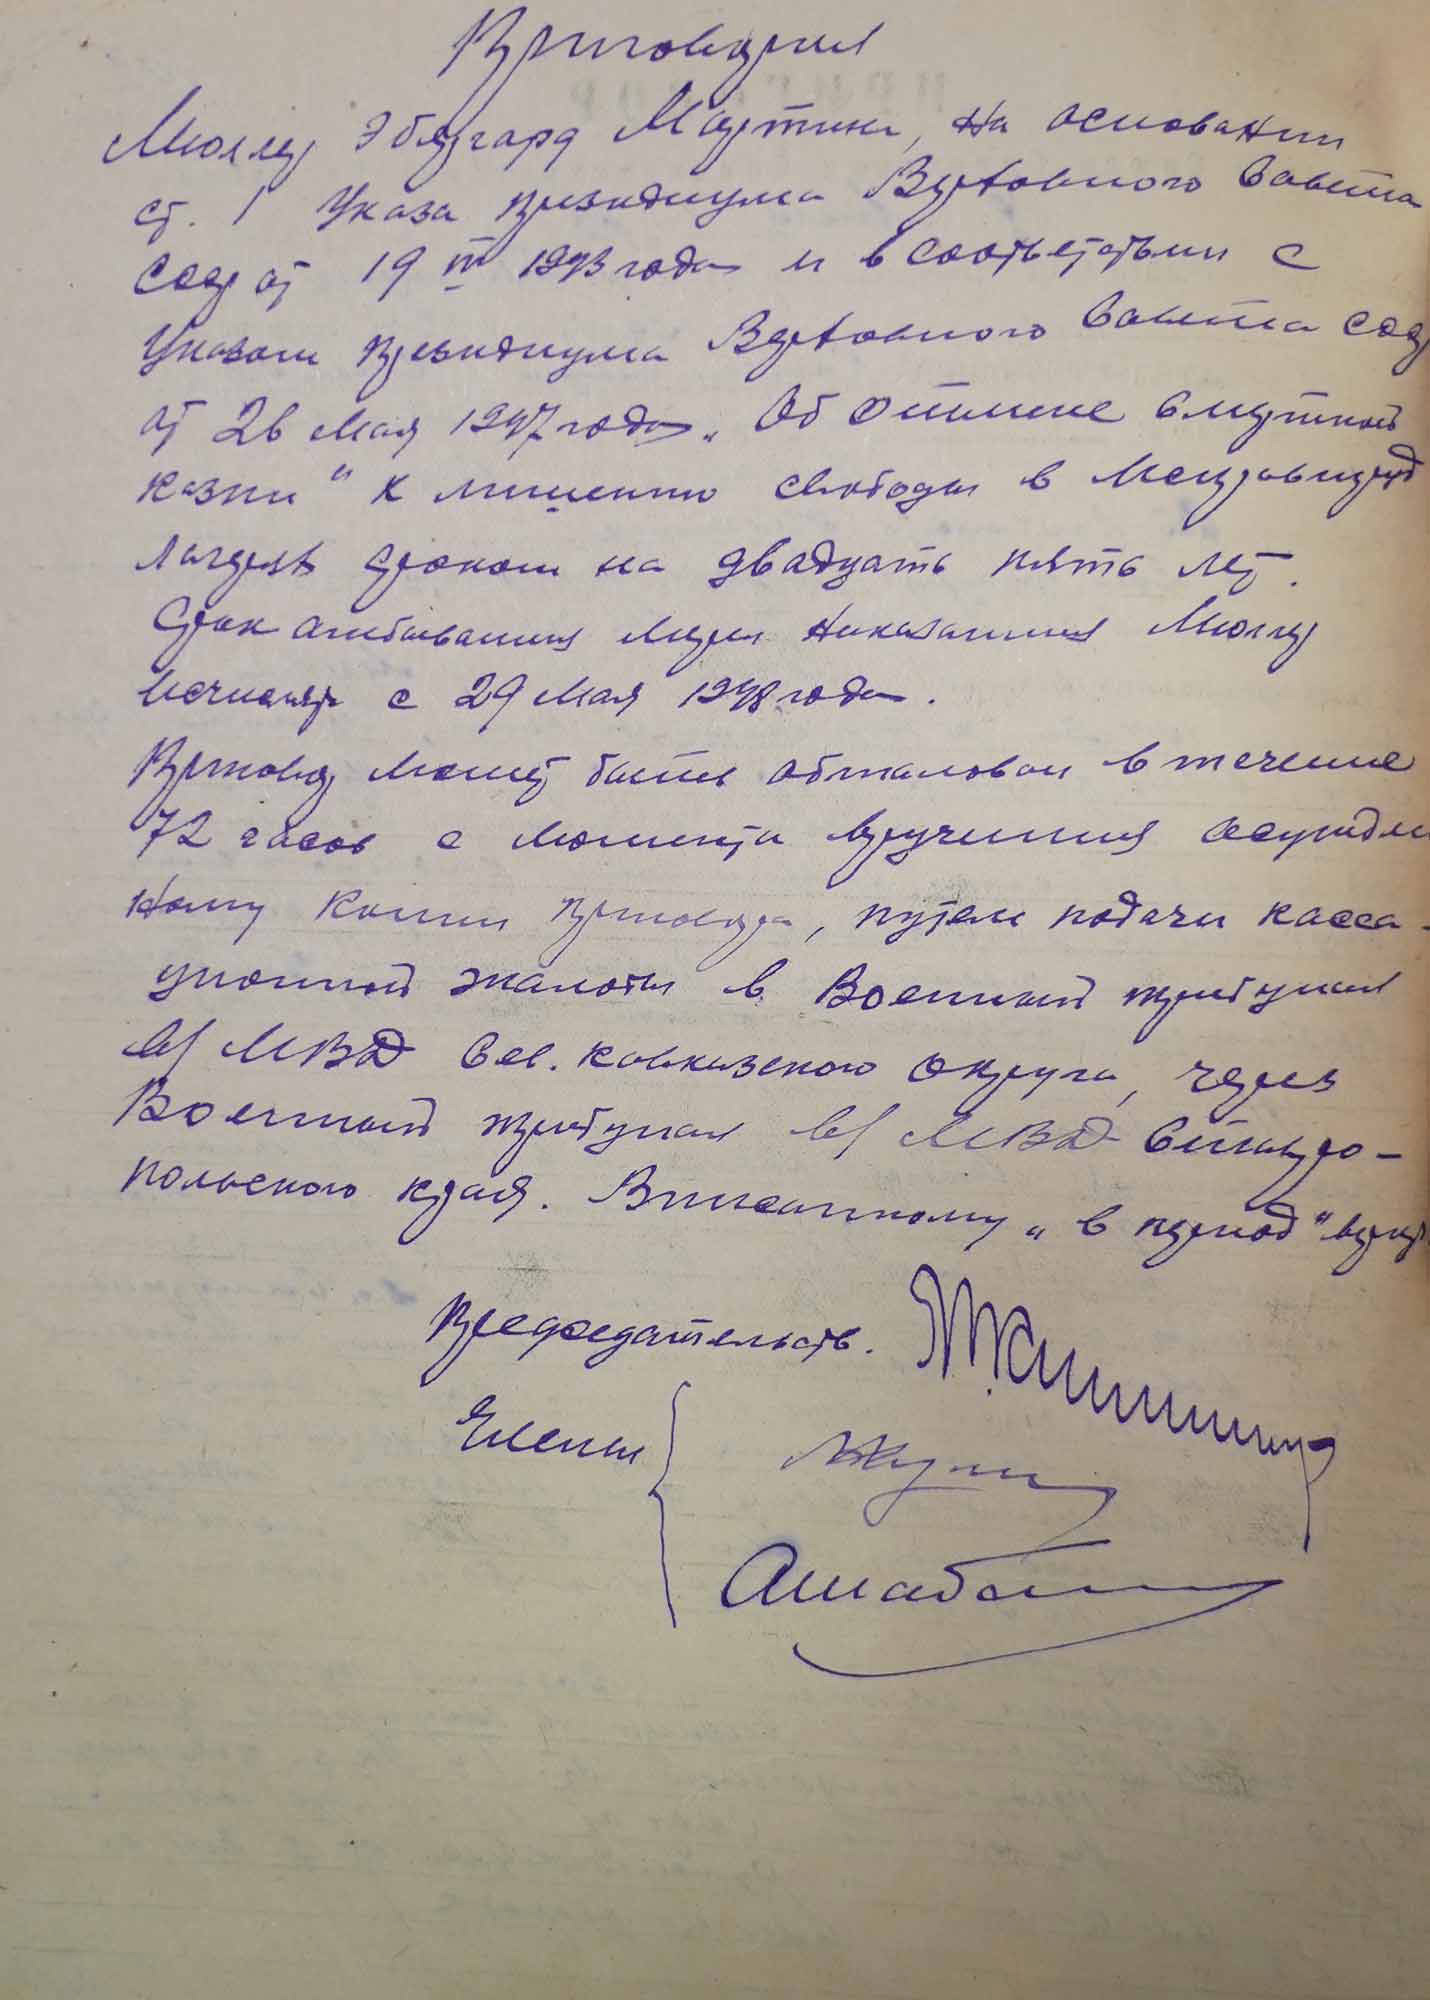 Приговорил
Мюллер Эбергард Мартина, на основании
ст. 1 Указа Президиума Верховного Совета
СССР от 19 IV 1943 года и в соответствии с
Указом Президиума Верховного Совета СССР
от 26 мая 1947 года „Об отмене смертной
казни" к лишению свободы в исправтруд
лагерь сроком на двадцать пять лет.
Срок отбывания меры наказания Мюллер
исчислять с 29 мая 1948 года.
Приговор может быть обжалован в течение
72 часов с момента вручения осужден
ному копии приговора, путем подачи касса-
ционной жалобы в Военный трибунал
в/ МВД Сев. Кавказского округа, через
Военный трибунал в/ МВД Ставро-
польского края. Вписанному „в период"
Председательств.
Члены